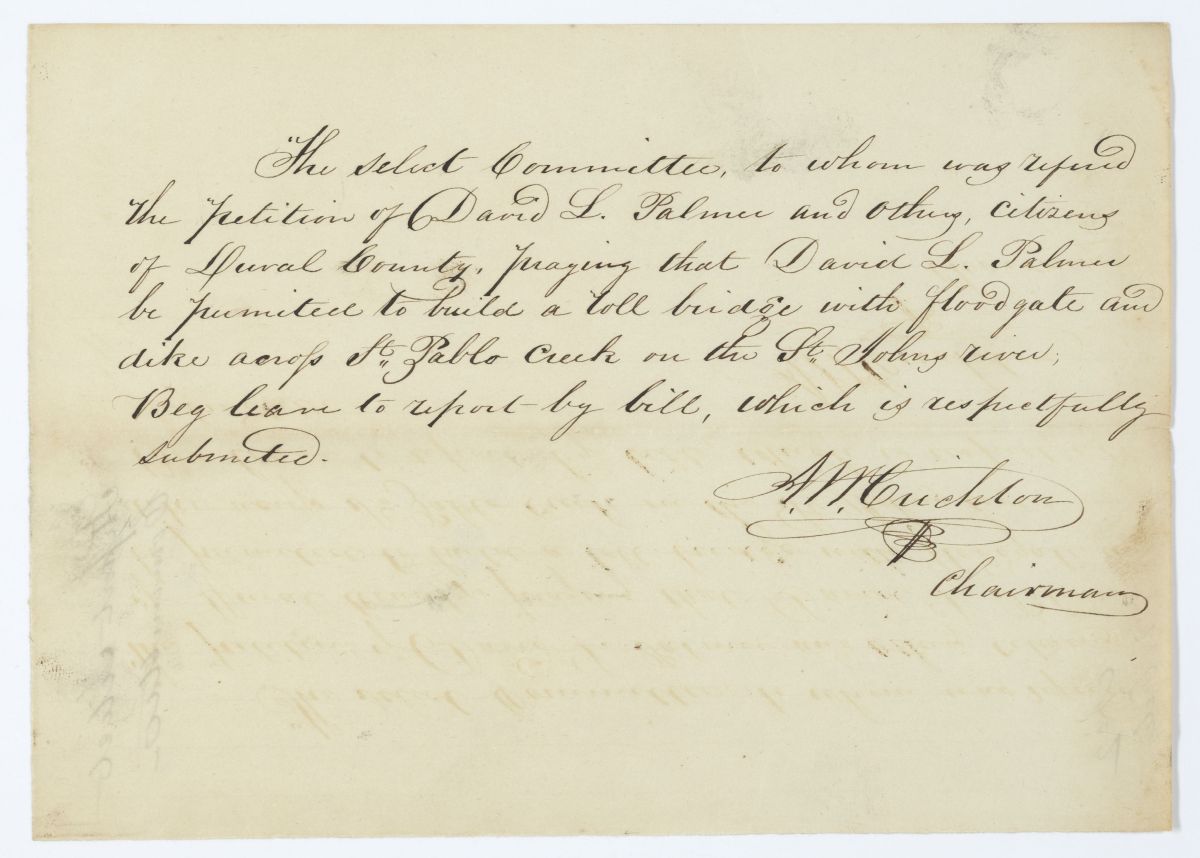 The select Committee, to whom was refered
the petition of David L. Palmer and others, citizens
of Duval County, praying that David L. Palmer
be permited to build a toll bridge with floodgate and
dike across St. Pablo Creek on the St. Johns river;
Beg leave to report by bill, which is respectfully
submited.
A. W. Crichton
Chairman